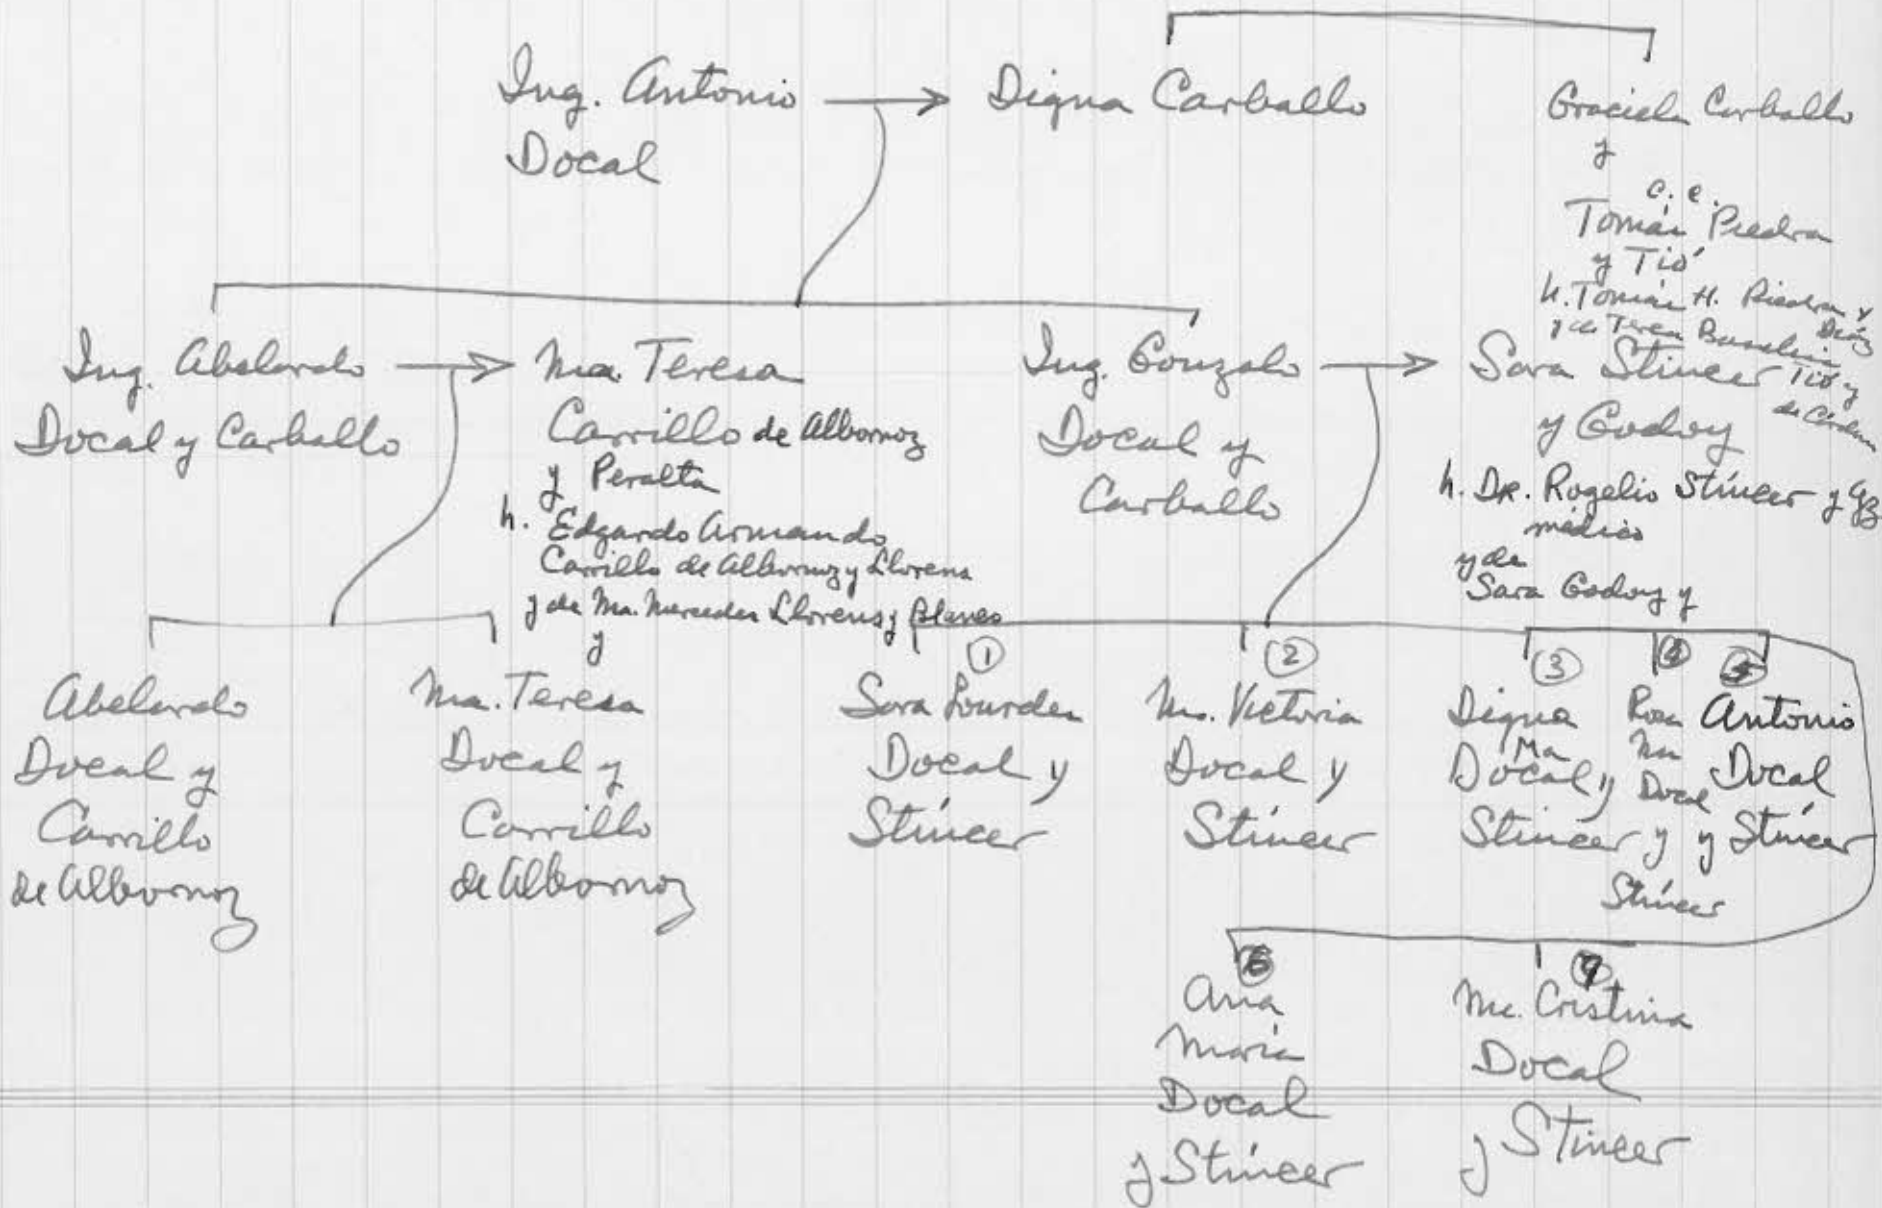 Ing. Antonio
Docal
Digna Carballo
Graciela Carballo
y
c. c.
Tomás Piedra
y Tió
h. Tomás H. Piedra y
Díaz
y de Teresa
Tió y
de Cárdenas
Ing. Abelardo
Docal y Carballo
Ma. Teresa
Carrillo de Albornoz
y Peralta
h. Edgardo Armando
Carrillo de Albornoz y Llorens
y de Ma. Mercedes Llorens y Blanes
y
Ing. Gonzalo
Docal y
Carballo
Sara Stíncer
y Godoy
h. DR. Rogelio Stíncer y
médico
y de
Sara Godoy y
Abelardo
Docal y
Carrillo
de Albornoz
Ma. Teresa
Docal y
Carrillo
de Albornoz
①
Sara Lourdes
Docal y
Stíncer
②
Ma. Victoria
Docal y
Stíncer
③
Digna
Ma
Docal y
Stíncer
④
Rosa
Ma
Docal
y
Stíncer
⑤
Antonio
Docal
y Stíncer
⑥
Ana
María
Docal
y Stíncer
⑦
Ma. Cristina
Docal
y Stíncer